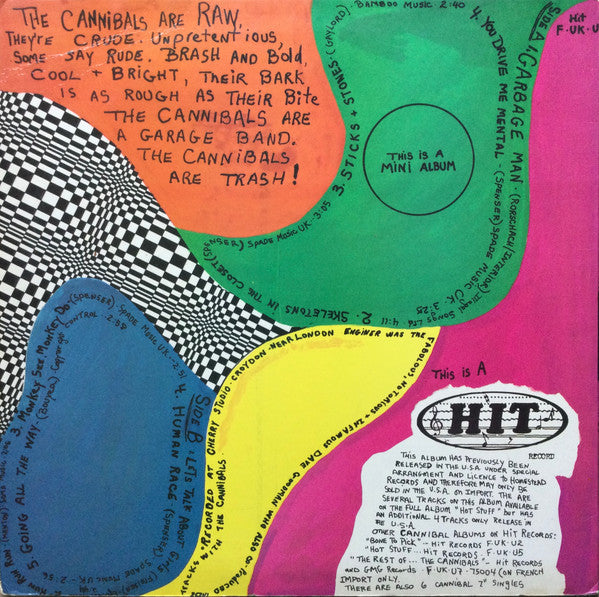 THE CANNIBALS ARE RAW,
THEY'RE CRUDE. UNPRETENTIOUS,
SOME SAY RUDE. BRASH AND BOLD,
COOL + BRIGHT, THEIR BARK
IS AS ROUGH AS THEIR BITE
THE CANNIBALS ARE
A GARAGE BAND.
THE CANNIBALS
ARE TRASH!
Hit
F·UK·U
SIDE A 1. GARBAGE MAN · (RORSCHACH/INTERIOR) Songs Ltd · 4:11
2. SKELETONS IN THE CLOSET (SPENSER) SPADE MUSIC UK · 3:05
3. STICKS + STONES · (GAYLORD) BAMBOO MUSIC 2:40
4. YOU DRIVE ME MENTAL · (SPENSER) SPADE MUSIC UK · 3:25
THIS IS A
MINI ALBUM
SIDE B · LET'S TALK ABOUT GIRLS
RAW RAW
SPADE MUSIC UK · 2:56
3. MONKEY SEE MONKEY DO (SPENSER) · SPADE MUSIC UK
4. HUMAN RACE (SPENSER)
5 GOING ALL THE WAY · Copyright CONTROL · 2:58
TRACKS RECORDED AT CHERRY STUDIO · CROYDON · NEAR LONDON ENGINER WAS THE
FABULOUS, NOTORIOUS + INFAMOUS DAVE GOODMAN WHO ALSO CO PRODUCED
WITH THE CANNIBALS
THIS IS A
HIT
RECORD
THIS ALBUM HAS PREVIOUSLY BEEN
RELEASED IN THE U.S.A UNDER SPECIAL
ARRANGMENT AND LICENCE TO HOMESTEAD
RECORDS AND THEREFORE MAY ONLY BE
SOLD IN THE U.S.A ON IMPORT. THE ARE
SEVERAL TRACKS ON THIS ALBUM AVAILABLE
ON THE FULL ALBUM "HOT STUFF" BUT HAS
AN ADDITIONAL 4 TRACKS ONLY RELEASE IN
THE U.S.A
OTHER CANNIBAL ALBUMS ON HIT RECORDS:
"BONE TO PICK" — HIT RECORDS F·UK·U2
"HOT STUFF... HIT RECORDS · F·UK·U5
"THE REST OF ... THE CANNIBALS" — HIT RECORDS
AND GMG Records · F·UK·U7 · 75004 (ON FRENCH
IMPORT ONLY.
THERE ARE ALSO 6 CANNIBAL 7" SINGLES